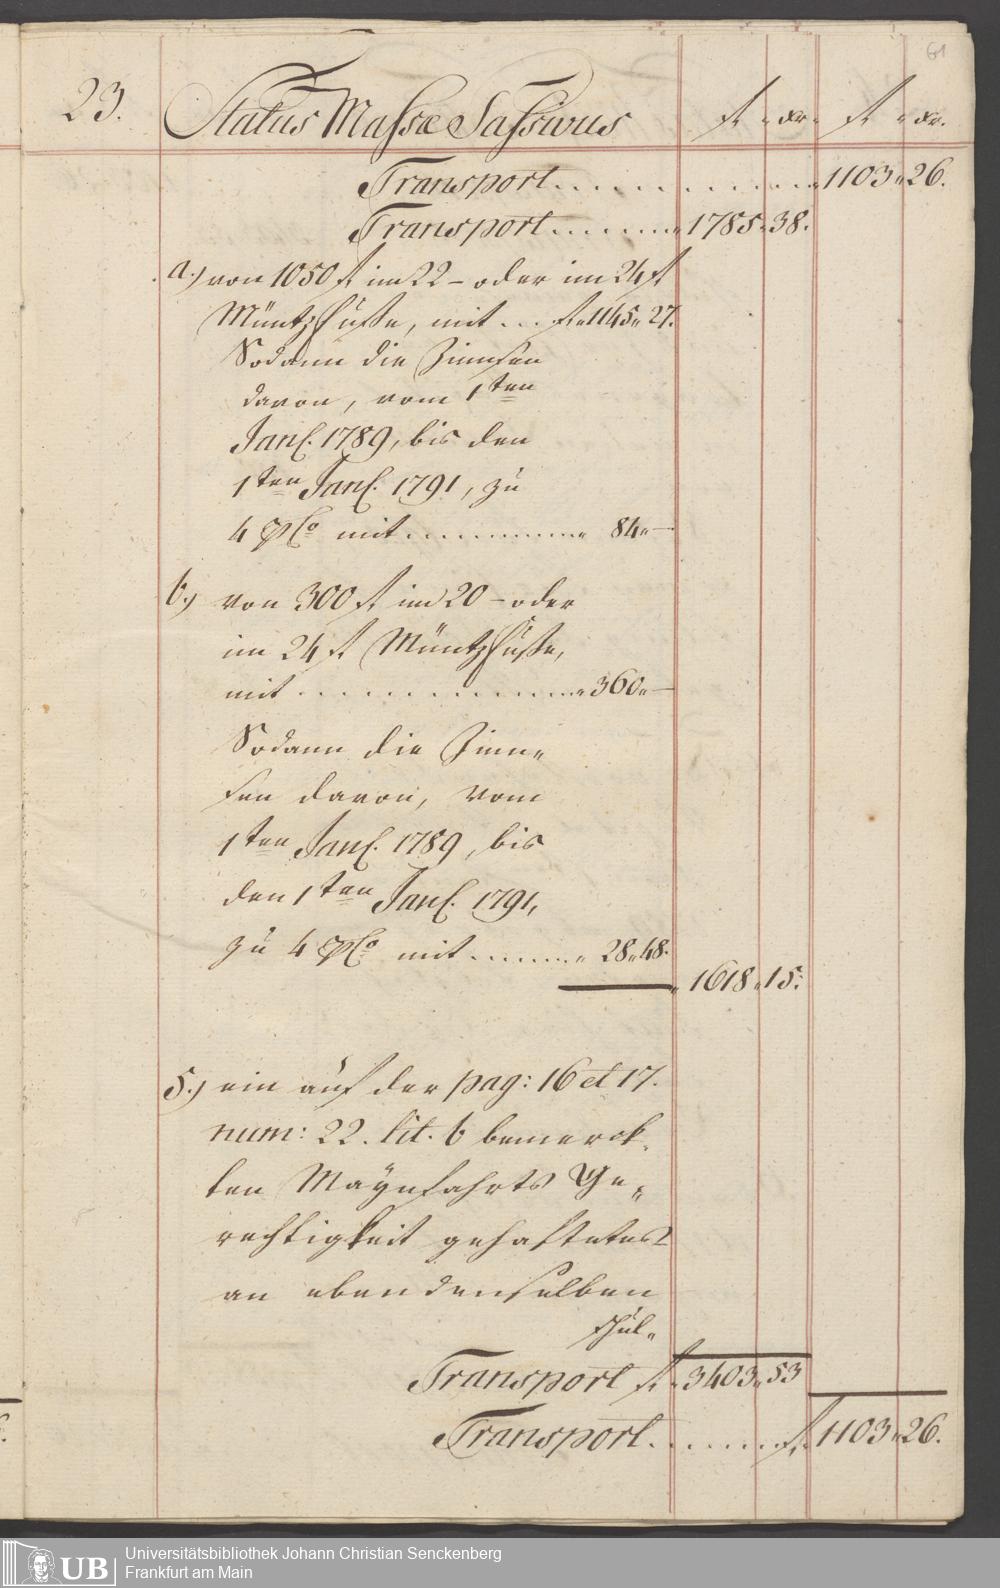 61
23. Status Massæ Passivus fl. xr. fl. xr.
Transport . . . . . . . . . . . 1103 " 26.
Transport . . . . . . . 1785 " 38.
a.) von 1050 fl im 22 - oder im 24 fl
Müntzfuße, mit . . . fl " 1145 " 27.
Sodann die Zinnsen
davon, vom 1ten
Jan. 1789, bis den
1ten Jan. 1791, zu
4 pCo mit . . . . . . . . . . " 84 " —
b.) von 300 fl im 20 - oder
im 24 fl Müntzfuße,
mit . . . . . . . . . . . . . . " 360 " —
Sodann die Zinn„
sen davon, vom
1ten Jan. 1789, bis
den 1ten Jan. 1791,
zu 4 pCo mit . . . . . . . " 28 " 48.
" 1618 " 15.
5.) ein auf der pag: 16 et 17.
num: 22. lit. b bemerck„
ten Maynfahrts Ge„
rechtigkeit gehaftetes
an eben denselben
schul„
Transport fl " 3403 " 53
Transport . . . . . . . fl. 1103 " 26.
UB
Universitätsbibliothek Johann Christian Senckenberg
Frankfurt am Main